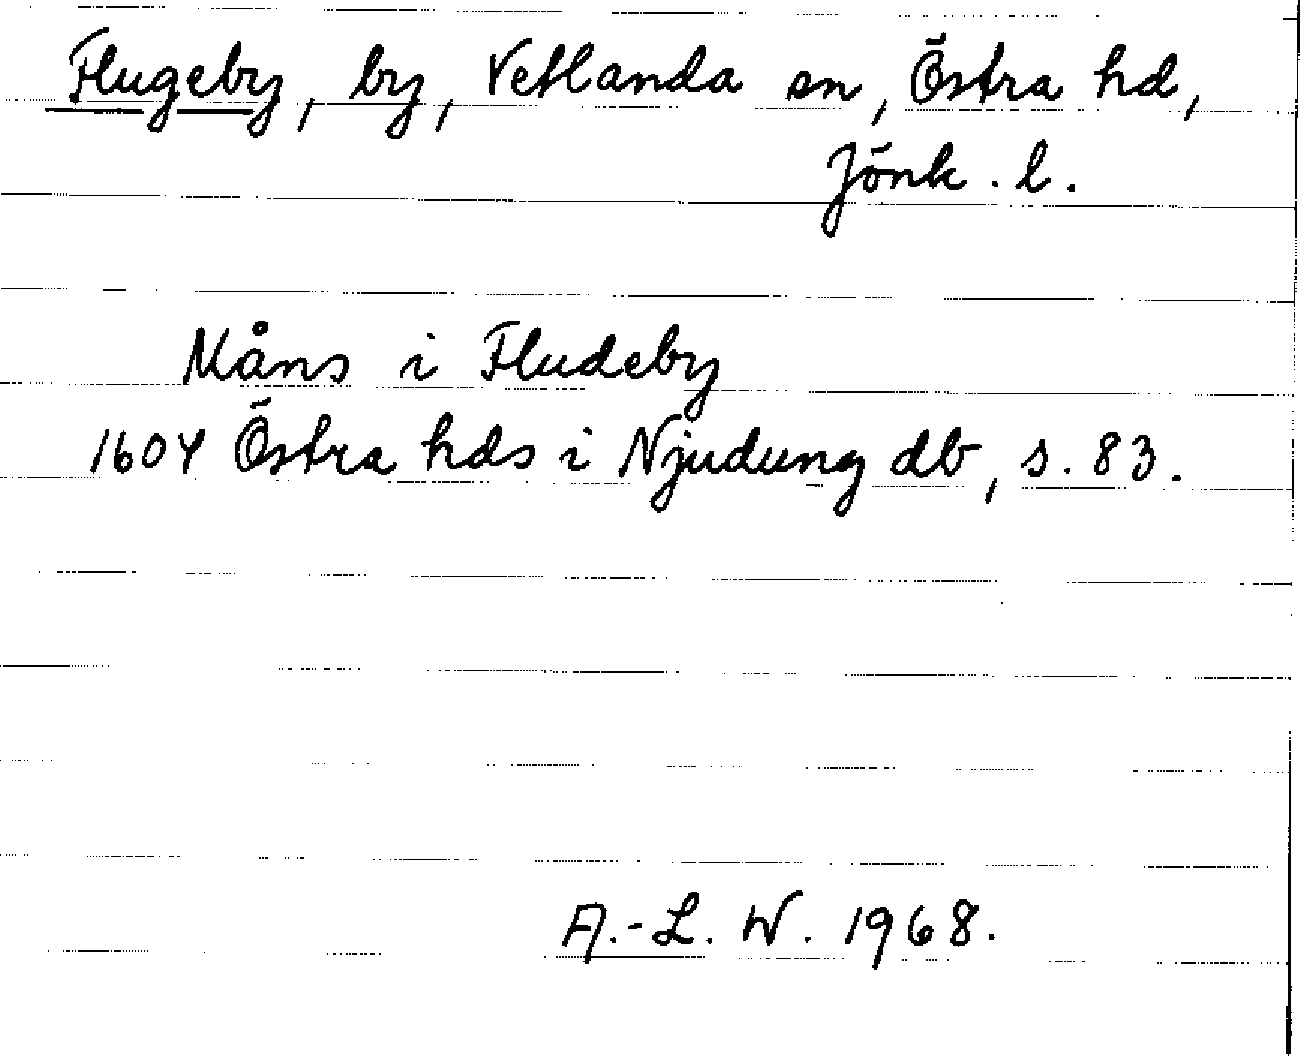 Flugeby, by, Vetlanda sn, Östra hd,
Jönk. l.
Måns i Fludeby
1604 Östra hds i Njudung db, s. 83.
A.-L. W. 1968.